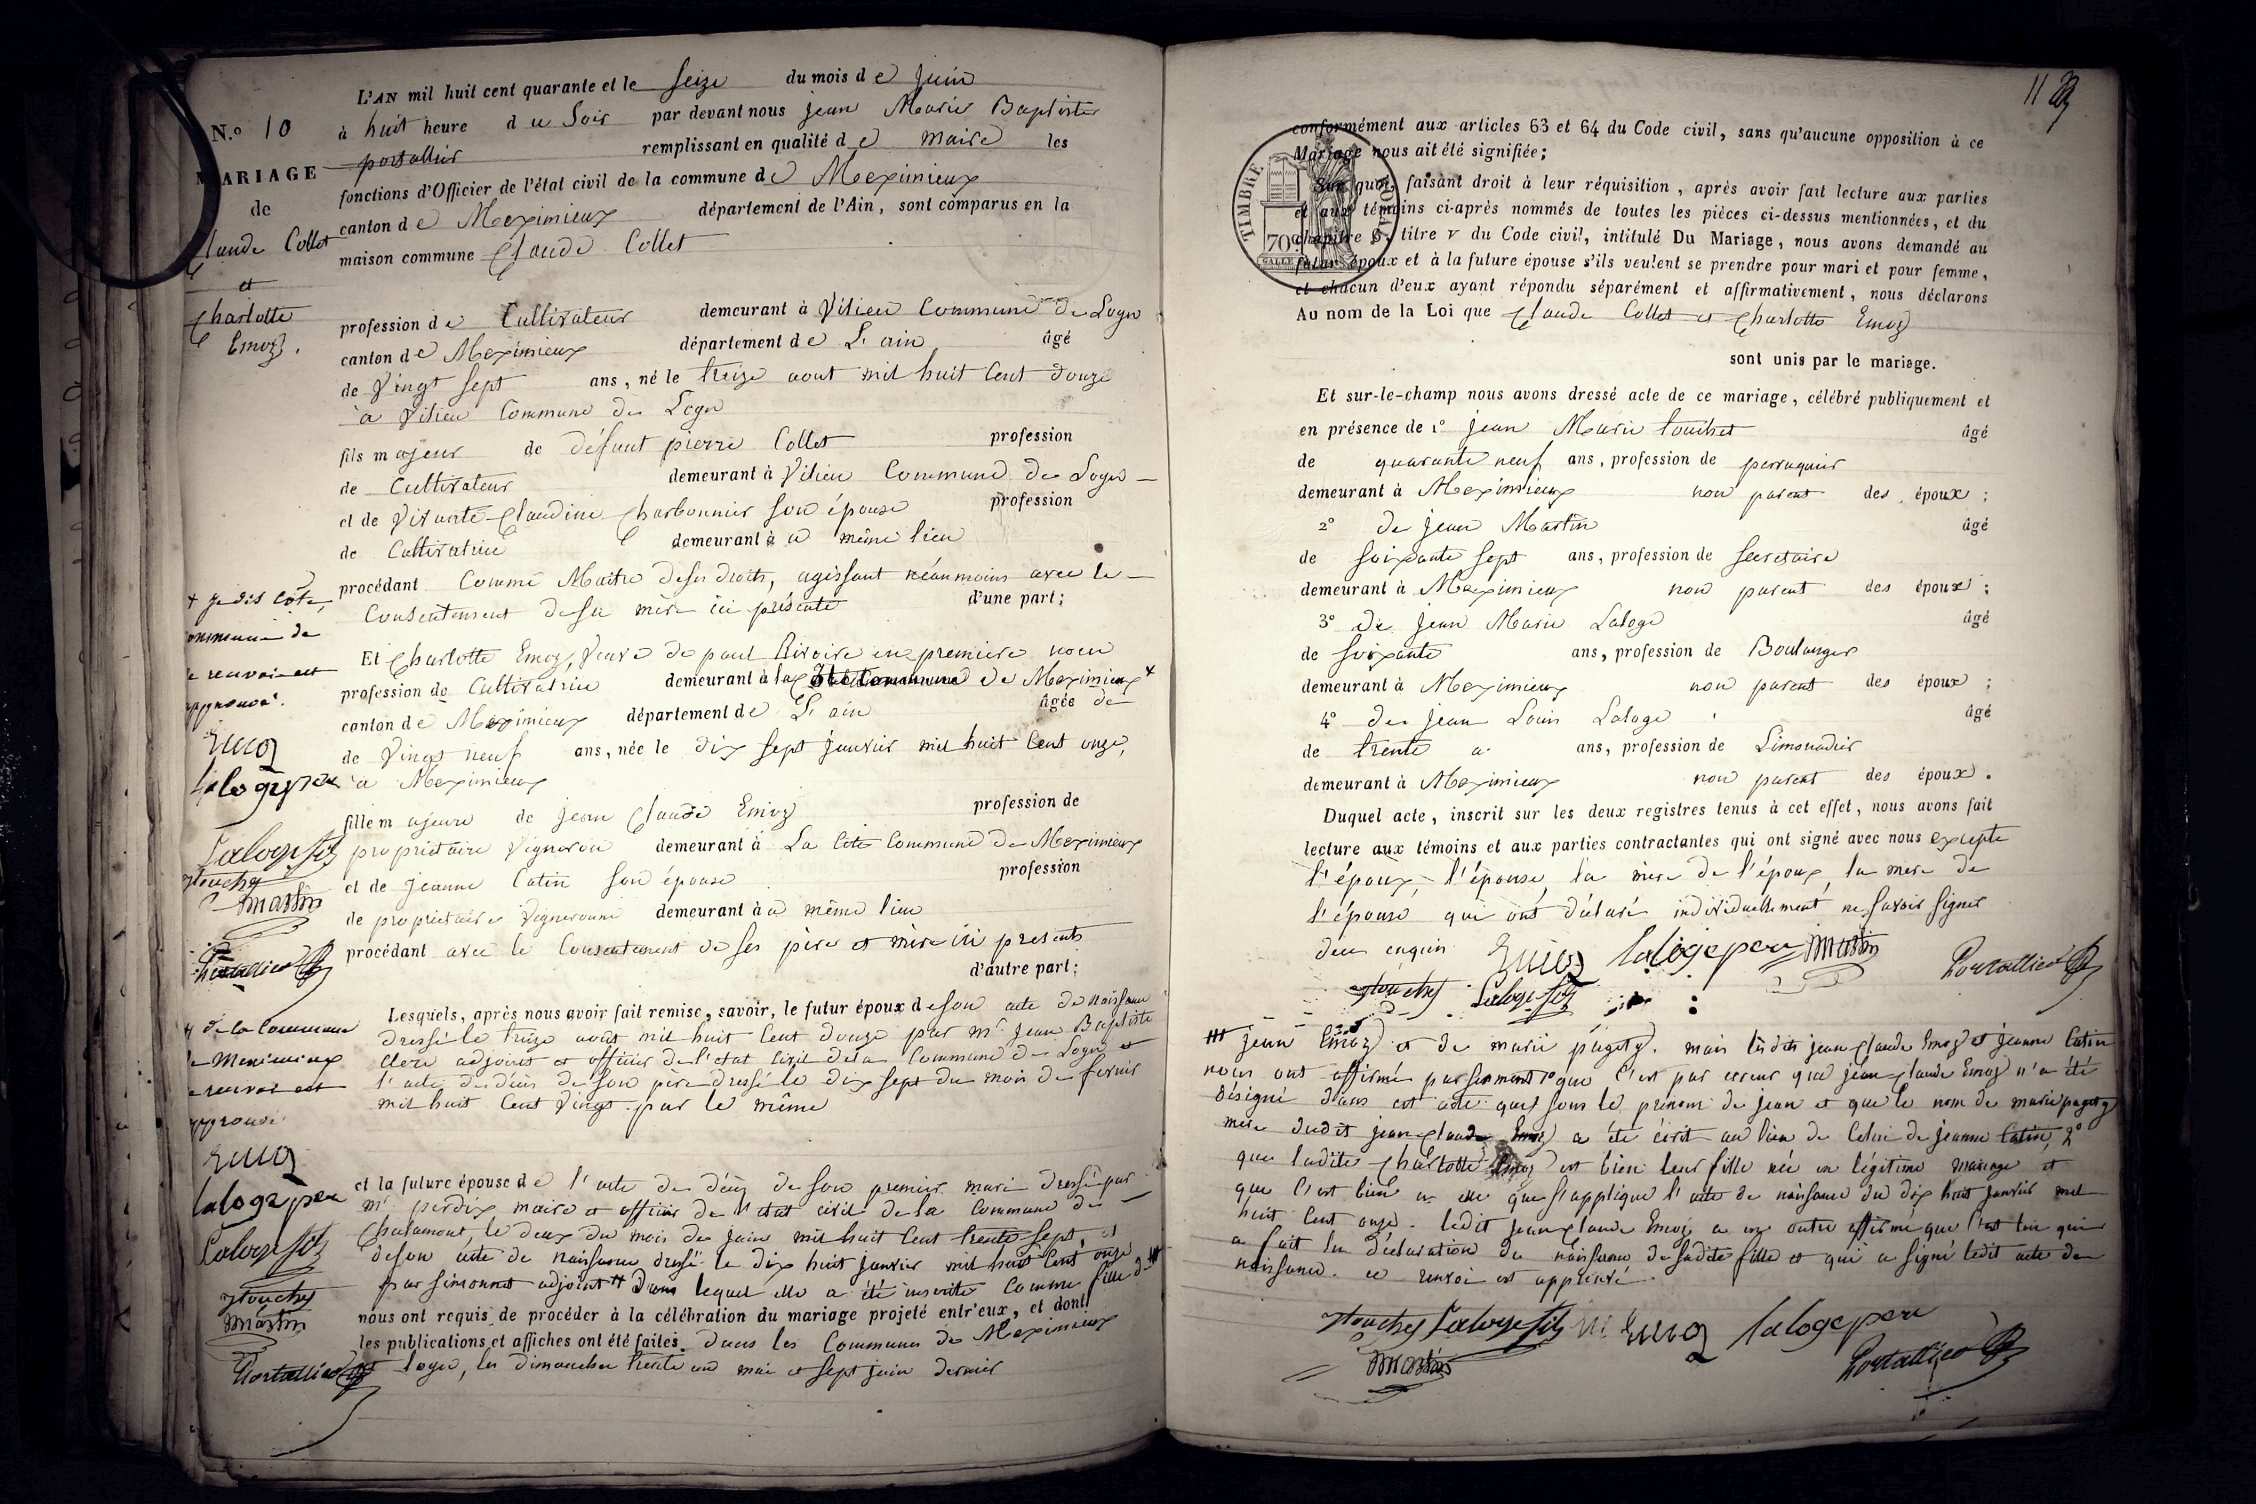 L'AN mil huit cent quarante et le Seize du mois de Juin
N.o 10 à huit heure du Soir par devant nous Jean Marie Baptiste
portallier remplissant en qualité de maire les
MARIAGE
fonctions d'Officier de l'état civil de la commune de Meximieux
de
canton de Meximieux département de l'Ain, sont comparus en la
Claude Collet
maison commune Claude Collet
et
Charlotte
Emoz.
profession de Cultivateur demeurant à Vilieu Commune de Loyes
canton de Meximieux département de L'ain âgé
de Vingt Sept ans, né le treize aout mil huit Cent douze
à Vilieu Commune de Loye
fils majeur de défunt pierre Collet profession
de Cultivateur demeurant à Vilieu Commune de Loyes
et de Vivante Claudine Charbonnier Son épouse profession
de Cultivatrice demeurant à au même lieu
procédant Comme Maitre de ses droits, agissant néanmoins avec le
Consentement de sa mère ici présente d'une part;
+ je dis Côte,
commune de
le renvoi est
approuvé.
Emoz
laloge pere
Laloge fils
Touchet
Martin
Portallier
Et Charlotte Emoz, Veuve de paul Rivoire en premiere noce
profession de Cultivatrice demeurant à la Commune de Meximieux +
canton de Meximieux département de L'ain âgée de
de Vingt neuf ans, née le dix Sept Janvier mil huit Cent onze,
à Meximieux
fille majeure de Jean Claude Emoz profession de
propriétaire Vigneron demeurant à La Côte Commune de Meximieux
et de Jeanne Catin Son épouse profession
de propriétaire Vigneronne demeurant à au même lieu
procédant avec le Consentement de Ses père et mère ici presents
d'autre part;
Lesquels, après nous avoir fait remise, savoir, le futur époux de son acte de naissance
dressé le treize août mil huit Cent douze par Mr. Jean Baptiste
Clerc adjoint et officier de l'etat Civil de la Commune de Loyes et
l'acte de décès de Son père dressé le dix Sept du mois de fevrier
mil huit Cent Vingt par le même
H de la Commune
de Meximieux
le renvoi est
approuvé
Emoz
laloge pere
Laloge fils
Touchet
Martin
Portallier
et la future épouse de l'acte de décès de Son premier mari dressé par
Mr. perdix maire et officier de l'etat civil de la Commune de
Chalamont, le deux du mois de Juin mil huit Cent trente Sept, et
de son acte de naissance dressé le dix huit Janvier mil huit Cent onze
par Simonnet adjoint H dans lequel elle a été inscrite Comme fille de
nous ont requis de procéder à la célébration du mariage projeté entr'eux, et dont
les publications et affiches ont été faites dans les Communes de Meximieux
et loyes, les dimanches trente un mai et Sept Juin dernier
11
conformément aux articles 63 et 64 du Code civil, sans qu'aucune opposition à ce
Mariage nous ait été signifiée;
TIMBRE ROYAL
70c
Sur quoi, faisant droit à leur réquisition, après avoir fait lecture aux parties
et aux témoins ci-après nommés de toutes les pièces ci-dessus mentionnées, et du
chapitre 6, titre v du Code civil, intitulé Du Mariage, nous avons demandé au
futur époux et à la future épouse s'ils veulent se prendre pour mari et pour femme,
et chacun d'eux ayant répondu séparément et affirmativement, nous déclarons
Au nom de la Loi que Claude Collet et Charlotte Emoz
sont unis par le mariage.
Et sur-le-champ nous avons dressé acte de ce mariage, célébré publiquement et
en présence de 1° Jean Marie touchet âgé
de quarante neuf ans, profession de perruquier
demeurant à Meximieux non parent des époux;
2° de Jean Martin âgé
de Soixante Sept ans, profession de Secretaire
demeurant à Meximieux non parent des époux;
3° de Jean Marie Laloge âgé
de Soixante ans, profession de Boulanger
demeurant à Meximieux non parent des époux;
4° de Jean Louis Laloge âgé
de trente ans, profession de Limonadier
demeurant à Meximieux non parent des époux.
Duquel acte, inscrit sur les deux registres tenus à cet effet, nous avons fait
lecture aux témoins et aux parties contractantes qui ont signé avec nous excepté
l'époux, l'épouse, la mere de l'époux, la mere de
l'épouse qui ont déclaré individuellement ne Savoir Signer
de ce enquis Emoz laloge pere Martin Portallier
Touchet Laloge fils
Jean Emoz et de marie pagety. mais lesdits Jean Claude Emoz et Jeanne Catin
nous ont affirmé par Serment 1° que C'est par erreur que Jean Claude Emoz n'a été
désigné dans cet acte que Sous le prénom de Jean et que le nom de marie pagety
mere dudit Jean Claude Emoz a été écrit au lieu de Celui de Jeanne Catin, 2°
que ladite Charlotte Emoz est bien leur fille née en légitime mariage et
que C'est bien à elle que S'applique l'acte de naissance du dix huit Janvier mil
huit Cent onze. ledit Jean Claude Emoz a en outre affirmé que C'est lui qui
a fait la déclaration de naissance de Sadite fille et qui a Signé ledit acte de
naissance. ce renvoi est approuvé.
Touchet Laloge fils Emoz laloge pere
Martin Portallier